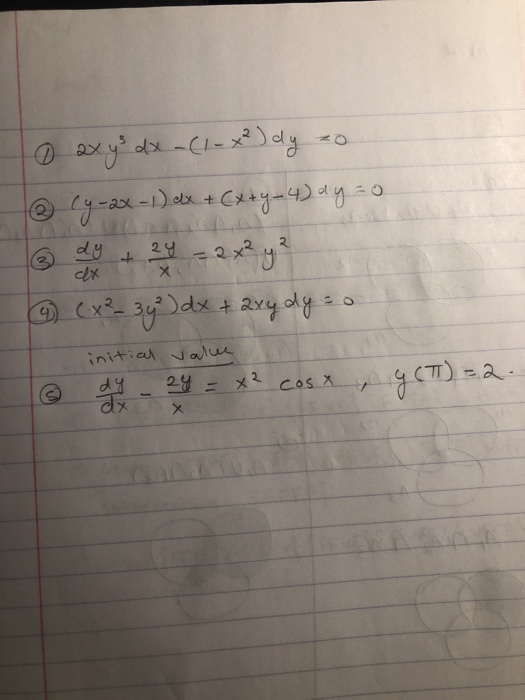 ① 2xy³ dx - (1 - x²) dy = 0
② (y - 2x - 1) dx + (x + y - 4) dy = 0
③ dy/dx + 2y/x = 2x² y²
④ (x² - 3y²) dx + 2xy dy = 0
initial value
⑤ dy/dx - 2y/x = x² cos x , y(π) = 2.